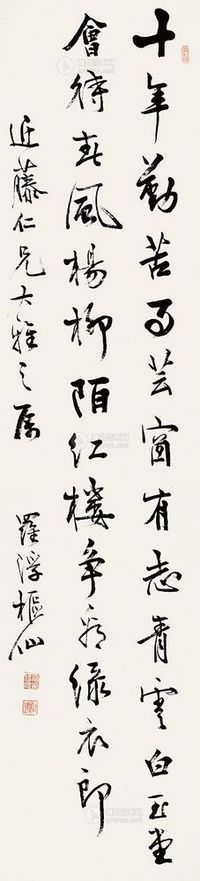 十年勤苦事芸窗有志青雲白玉堂
會待春風楊柳陌紅樓爭看綠衣郎
近藤仁兄大雅之属 羅浮樞仙